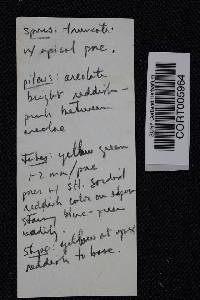 spores: truncate
w/ apical pore.
pileus: areolate
bright reddish-
pink between
areolae
Tubes: yellow green
1-2 mm/pore
pores w/ sl. sordid
reddish color on edges
staining blue-green
readily.
Stipe: yellow at apex
reddish to base.
SUNY Cortland Herbarium
CORT005964